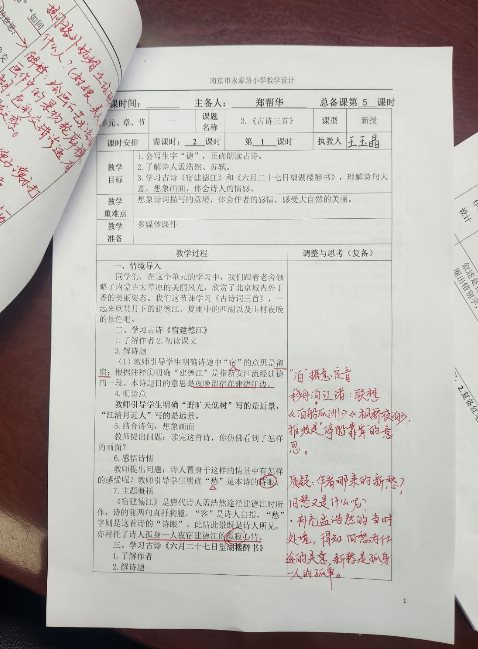 南京市永泰路小学教学设计
课时间:
主备人:
郑帮华
总备课第 5 课时
单元、章、节
一
课题名称
3.《古诗三首》
课型
新授
课时安排
需课时: 2 课时
第 1 课时
执教人
王玉晶
教学目标
1.会写生字“德”,正确朗读古诗。
2.了解诗人孟浩然、苏轼。
3.学习古诗《宿建德江》和《六月二十七日望湖楼醉书》,理解诗句大意,想象画面,体会诗人的情感。
教学重难点
想象诗词描写的意境,体会作者的感情,感受大自然的美丽。
教学准备
多媒体课件
教学过程
调整与思考(复备)
一、情境导入
同学们,在这个单元的学习中,我们跟着老舍领
略了内蒙古大草原的美丽风光,欣赏了北京城内外丁
香的美丽姿态。我们这节课学习《古诗词三首》,一
起来欣赏月下的建德江、夏雨中的西湖以及山村夜晚
的景色吧。
二、学习古诗《宿建德江》
1.了解作者 2.初读课文
3.解诗题
(1)教师引导学生明确诗题中“宿”的意思是留
宿;根据注释①明确“建德江”是指新安江流经建德
的一段。本诗题目的意思是夜晚留宿在建德江边。
4.明景点
教师引导学生明确“野旷天低树”写的是远景,
“江清月近人”写的是近景。
5.结合诗句,想象画面
教师提出问题:读完这首诗,你仿佛看到了怎样
的画面?
6.感悟诗情
教师提出问题:诗人置身于这样的情景中有怎样
的感受呢?教师引导学生明确“愁”是本诗的诗眼。
7.主题概括
《宿建德江》是唐代诗人孟浩然途径建德江时所
作,诗的前两句点
字则是这首诗的“诗眼”。此情此景既是诗人所见,
亦衬托了诗人孤身一人夜宿建德江的孤寂心情。
三、学习古诗《六月二十七日望湖楼醉书》
1.了解作者
2.解诗题
“泊”据意定音
移舟泊江渚 联想
《泊船瓜洲》《枫桥夜泊》,
推知是停船靠岸的意
思。
质疑:作者哪来的新愁?
旧愁又是什么呢?
孟浩然的当时
处境,得知旧愁为仕
途的失意,新愁是孤身
一人的孤寂。
1